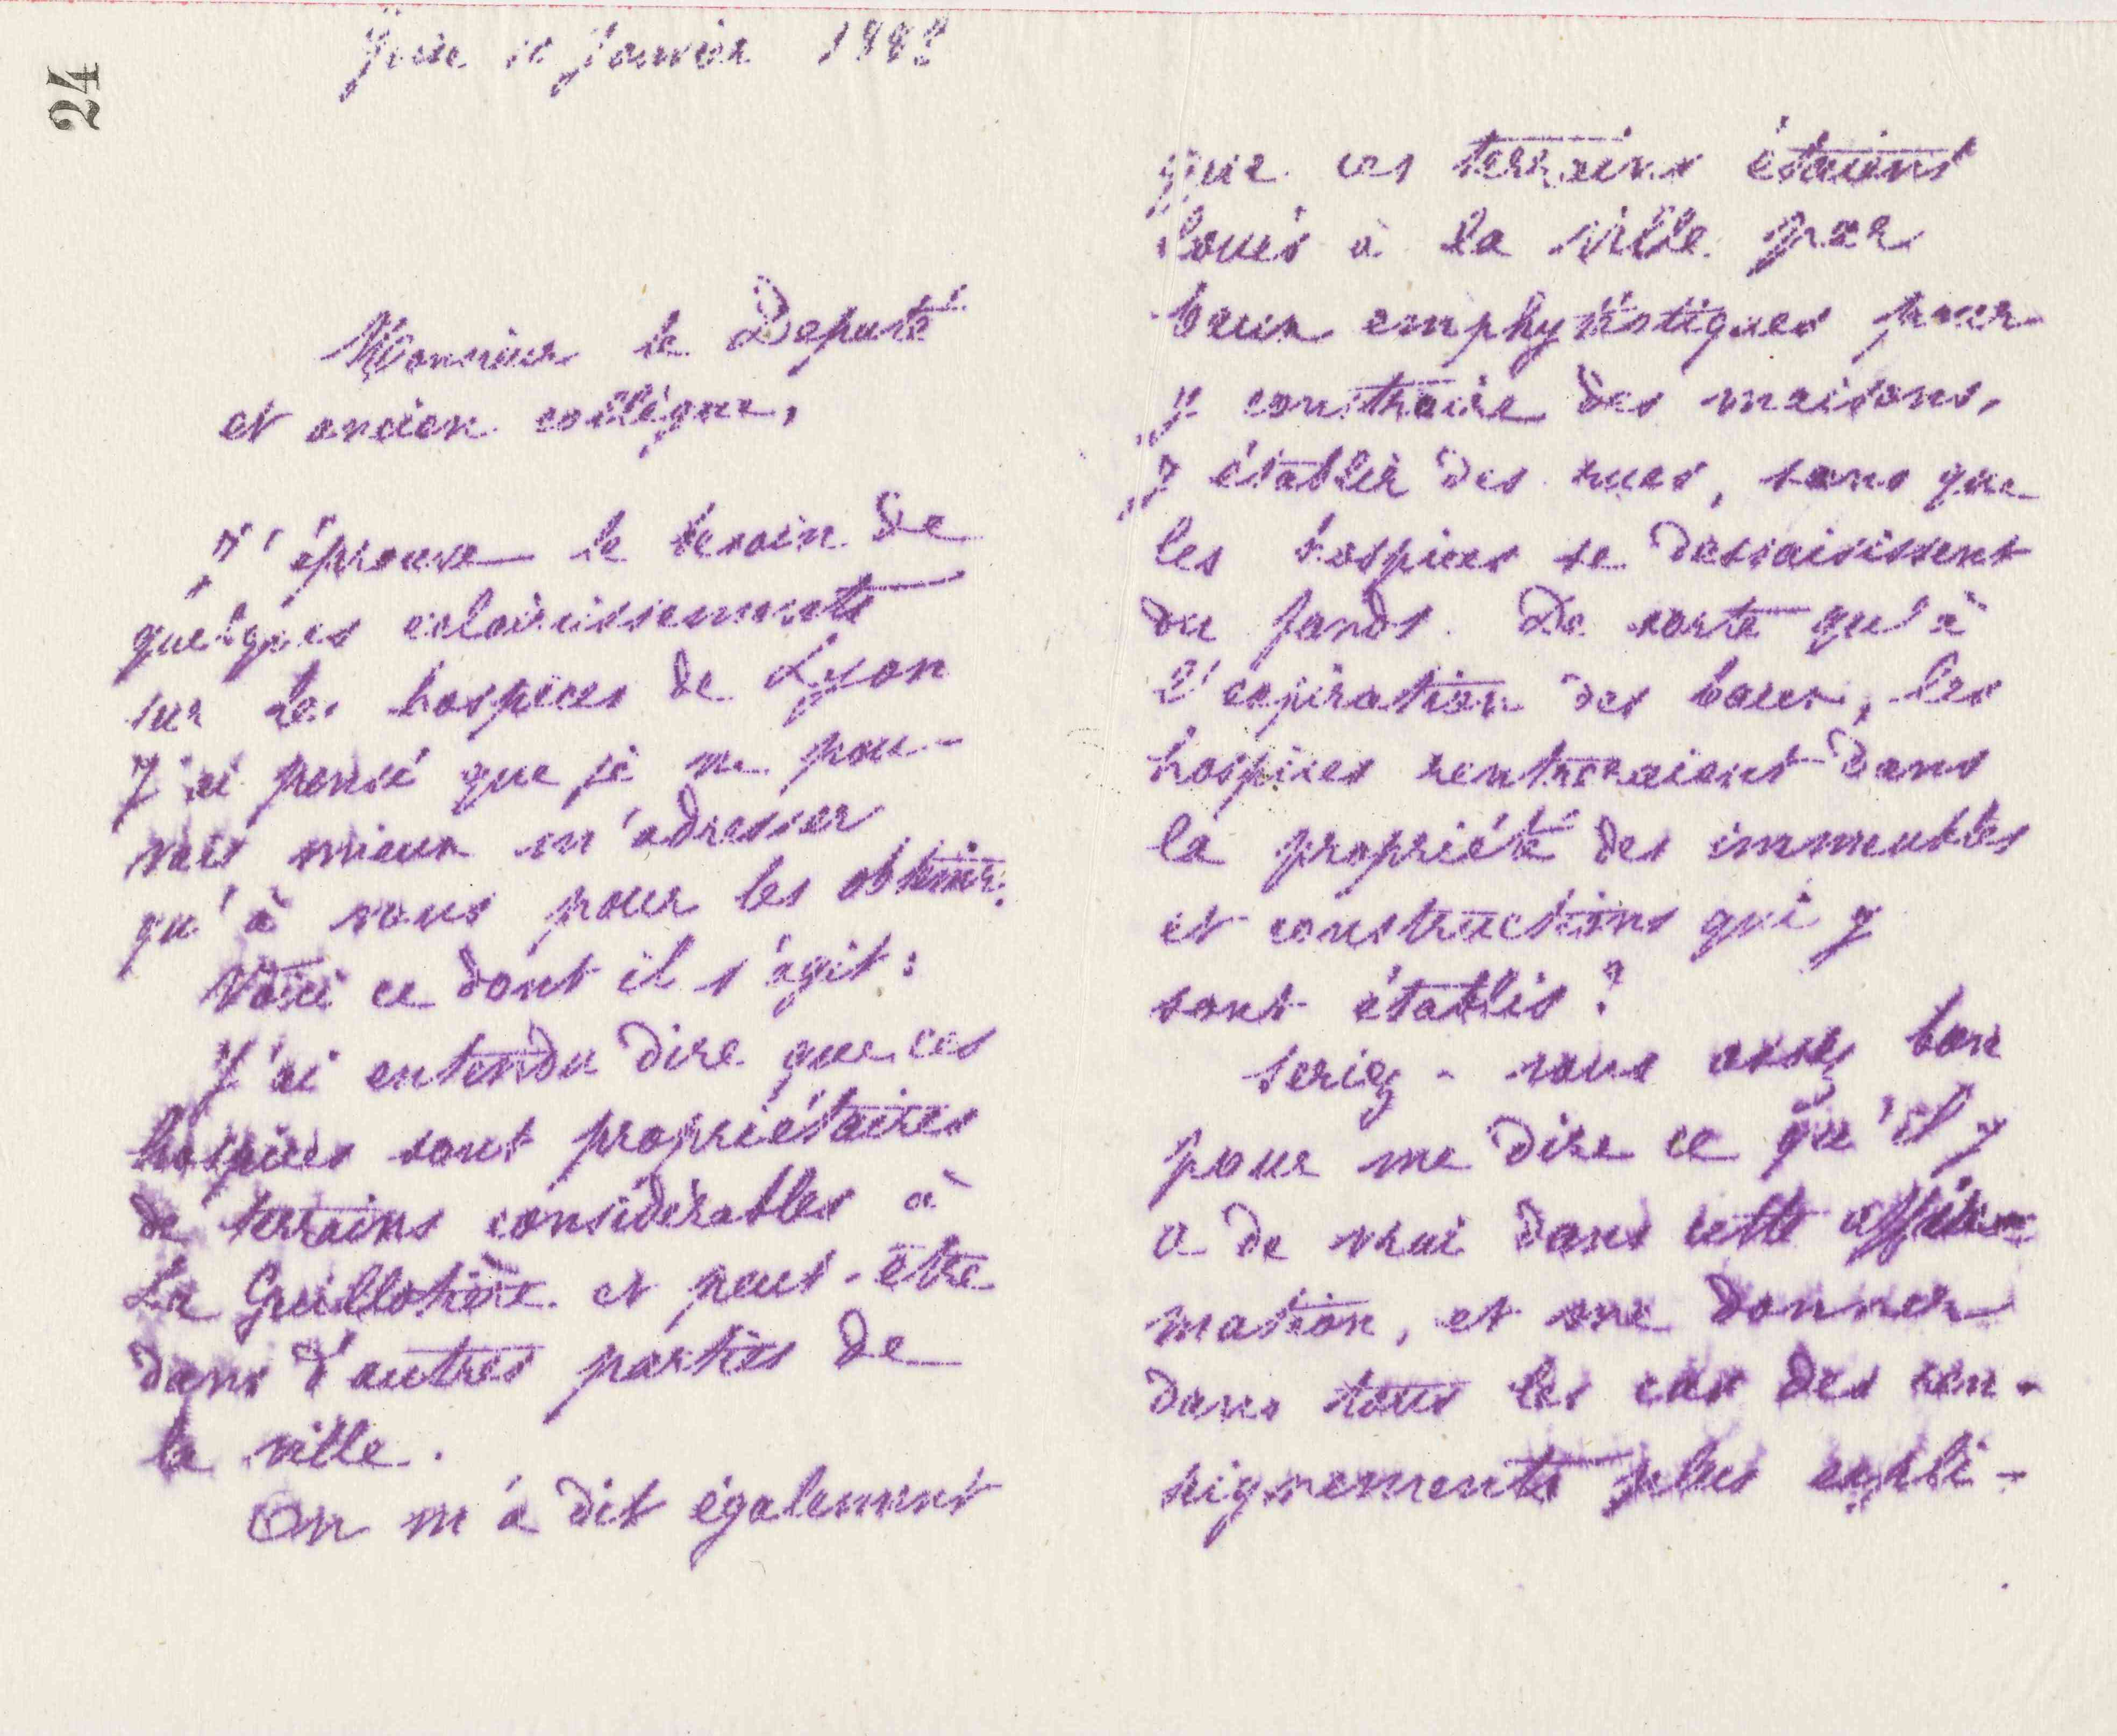 24
Guise 10 Janvier 1882
Monsieur le Deputé
et ancien collégue,
J'éprouve le besoin de
quelques eclaircissements
sur les hospices de Lyon
J'ai pensé que je ne pou-
vais mieux m'adresser
qu'à vous pour les obtenir.
Voici ce dont il s'agit:
J'ai entendu dire que ces
hospices sont propriétaires
de terrains considérables à
La Guillotière et peut-être
dans d'autres parties de
la ville.
On m'a dit également
que ces terrains étaient
loués à la ville par
baux emphytéotiques pour
y construire des maisons,
y établir des rues, sans que
les hospices se dessaisissent
du fonds. De sorte qu'à
l'expiration des baux, les
hospices rentreraient dans
la propriété des immeubles
et constructions qui y
sont établis?
Seriez-vous assez bon
pour me dire ce qu'il y
a de vrai dans cette affir-
mation, et me donner
dans tous les cas des ren-
seignements plus expli-